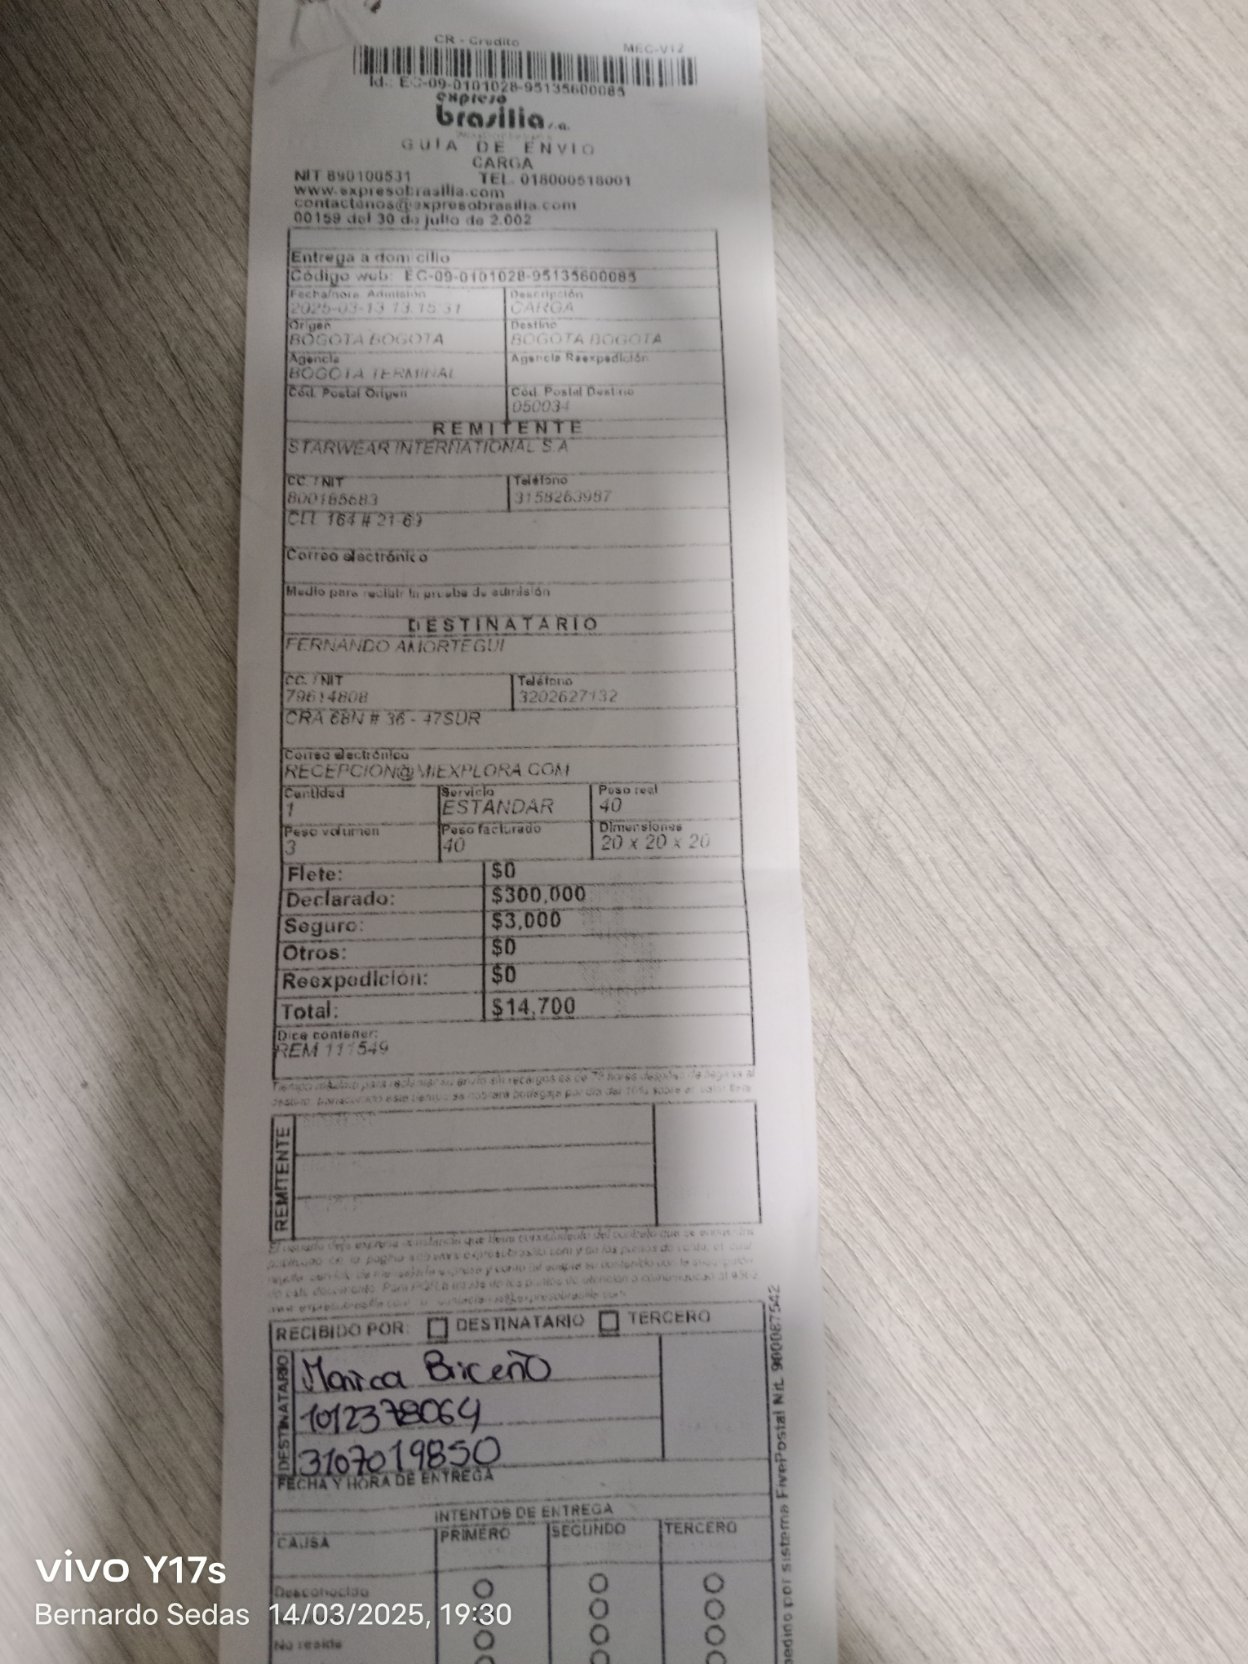 CR - Credito MEC-V12
Id.: EC-09-0101028-95135600085
expreso
brasilia s.a.
GUIA DE ENVIO
CARGA
NIT 890100531 TEL. 018000518001
www.expresobrasilia.com
contactenos@expresobrasilia.com
00159 del 30 de julio de 2.002
Entrega a domicilio
Código web: EC-09-0101028-95135600085
Fecha/hora Admisión Descripción
2025-03-13 13:15:31 CARGA
Origen Destino
BOGOTA BOGOTA BOGOTA BOGOTA
Agencia Agencia Reexpedición
BOGOTA TERMINAL
Cód. Postal Origen Cód. Postal Destino
050034
REMITENTE
STARWEAR INTERNATIONAL S.A
CC. / NIT Teléfono
800185683 3158263987
CLL 164 # 21 69
Correo electrónico
Medio para recibir la prueba de admisión
DESTINATARIO
FERNANDO AMORTEGUI
CC. / NIT Teléfono
79614808 3202627132
CRA 68N # 36 - 47SUR
Correo electrónico
RECEPCION@MIEXPLORA.COM
Cantidad Servicio Peso real
1 ESTANDAR 40
Peso volumen Peso facturado Dimensiones
3 40 20 x 20 x 20
Flete: $0
Declarado: $300,000
Seguro: $3,000
Otros: $0
Reexpedición: $0
Total: $14,700
Dice contener:
REM 111549
REMITENTE
RECIBIDO POR: DESTINATARIO TERCERO
DESTINATARIO
Monica Briceño
1012378064
3107019850
FECHA Y HORA DE ENTREGA
INTENTOS DE ENTREGA
CAUSA PRIMERO SEGUNDO TERCERO
Desconocido
No reside
sistema FivePostal Nit. 900087542
vivo Y17s
Bernardo Sedas 14/03/2025, 19:30